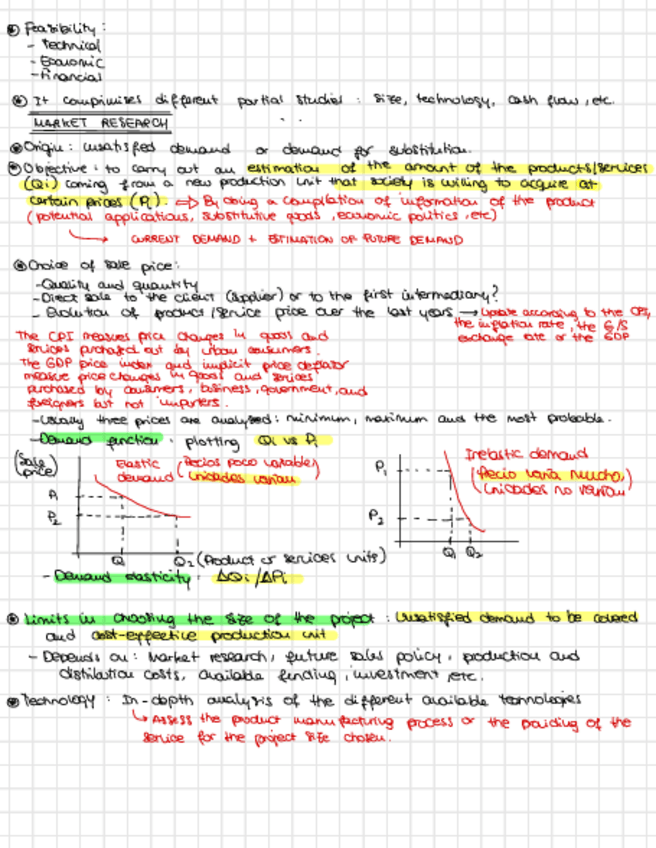 Feasibility:
- Technical
- Economic
- Financial
It comprimises different partial studies: size, technology, cash flow, etc.
MARKET RESEARCH
Origin: unsatisfied demand or demand for substitution.
Objective: to carry out an estimation of the amount of the products/services
(Qi) coming from a new production unit that society is willing to acquire at
certain prices (Pi). ⇒ By doing a compilation of information of the product
(potential applications, substitutive goods, economic politics, etc)
→ CURRENT DEMAND + ESTIMATION OF FUTURE DEMAND
Choice of sale price:
- Quality and quantity
- Direct sale to the client (supplier) or to the first intermediary?
- Evolution of product/service price over the last years → Update according to the CPI,
the inflation rate, the €/$
exchange rate or the GDP
The CPI measures price changes in goods and
services purchased out by urban consumers.
The GDP price index and implicit price deflator
measure price changes in goods and services
purchased by consumers, business, government, and
foreigners but not importers.
- Usually three prices are analysed: minimum, maximum and the most probable.
- Demand function: plotting Qi vs Pi
(Sale price)
Elastic demand (Precios poco variables)
Unidades varían
P1
P2
Q1
Q2 (Product or services units)
Inelastic demand
(Precio varía mucho,)
Unidades no varían)
P1
P2
Q1 Q2
- Demand elasticity: ΔQi/ΔPi
Limits in choosing the size of the project: Unsatisfied demand to be covered
and cost-effective production unit
- Depends on: Market research, future sales policy, production and
distribution costs, available funding, investment, etc.
Technology: In-depth analysis of the different available technologies
↳ Assess the product manufacturing process or the providing of the
service for the project size chosen.